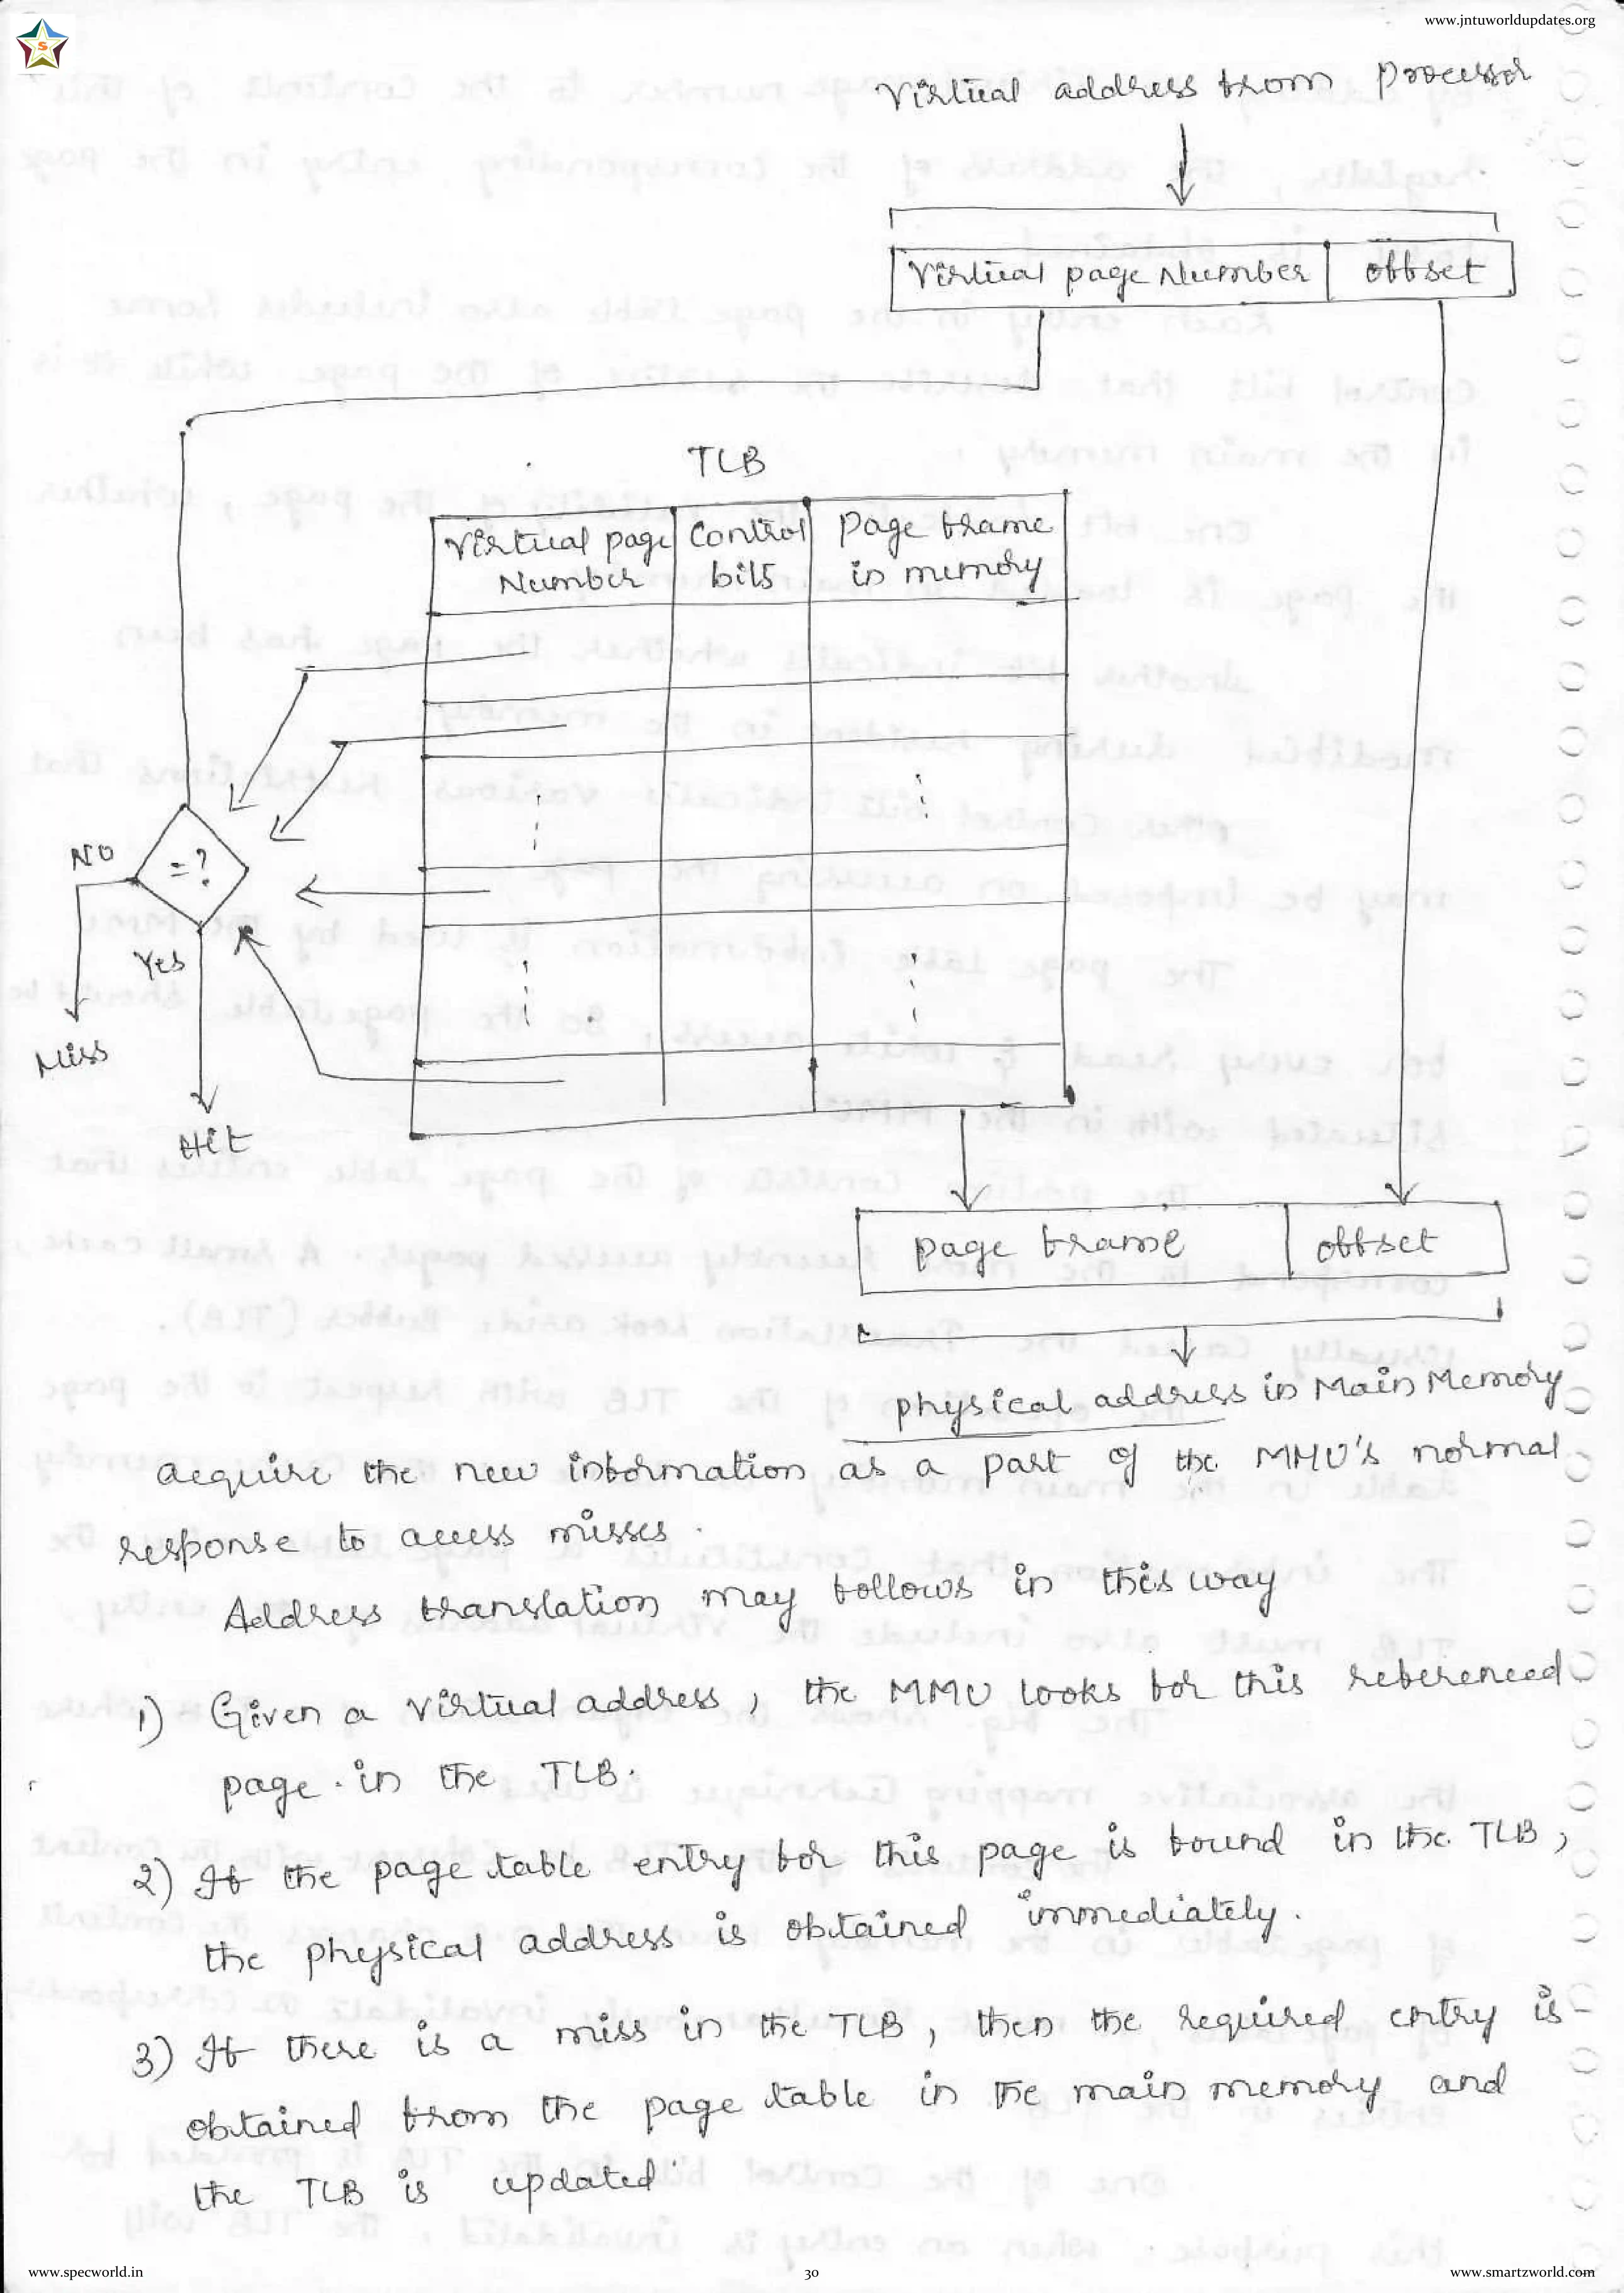 www.jntuworldupdates.org
S
Virtual address from processor
Virtual page Number offset
TLB
Virtual page Number Control bits Page frame in memory
=?
NO
Yes
Miss
Hit
page frame offset
physical address in Main Memory
acquire the new information as a part of the MMU's normal
response to access misses.
Address translation may follows in this way
1) Given a virtual address, the MMU looks for this referenced
page in the TLB.
2) If the page table entry for this page is found in the TLB,
the physical address is obtained immediately.
3) If there is a miss in the TLB, then the required entry is
obtained from the page table in the main memory and
the TLB is updated.
www.specworld.in 30 www.smartzworld.com